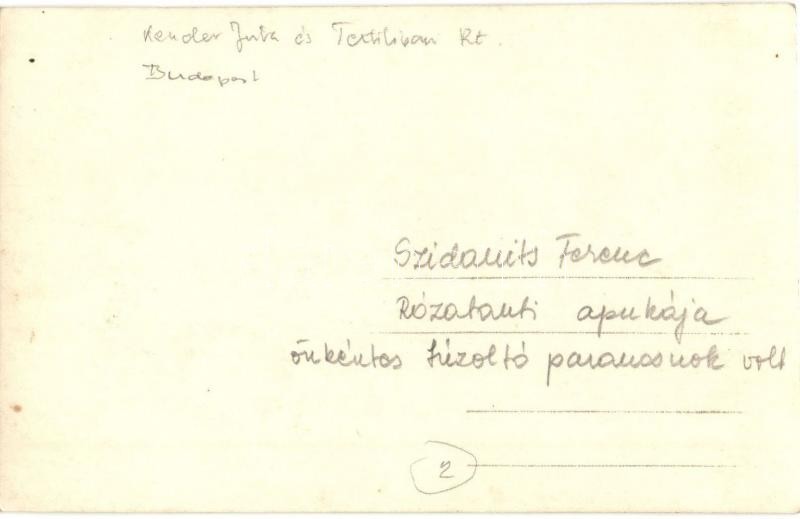 Kender Juta és Textilipari Rt.
Budapest
Szidanits Ferenc
Rózatanti apukája
önkéntes tűzoltó parancsnok volt
2